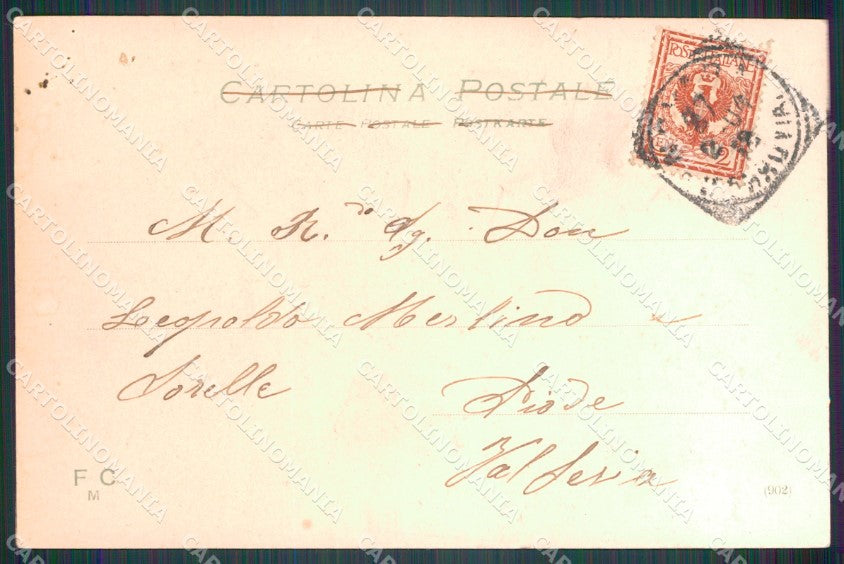 CARTOLINA POSTALE
CARTE POSTALE POSTKARTE
POSTE ITALIANE
2
M. R.do Sg. Don
Leopoldo Merlino e
Sorelle
Piode
Val Sesia
F C
M
(902)
CARTOLINOMANIA